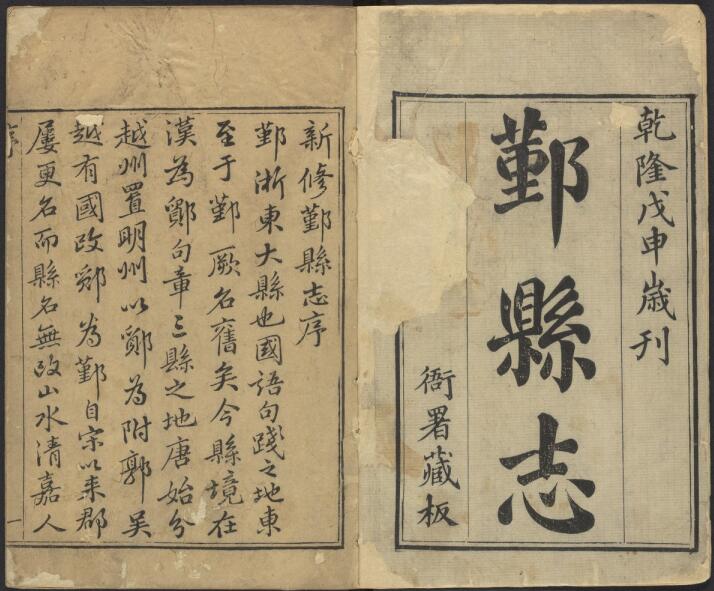 乾隆戊申歲刊
鄞縣志
衙署藏板
新修鄞縣志序
鄞浙東大縣也國語句踐之地東
至于鄞厥名舊矣今縣境在
漢為鄮句章三縣之地唐始分
越州置明州以鄮為附郭吴
越有國改鄮為鄞自宋以来郡
屢更名而縣名無改山水清嘉人
序
一